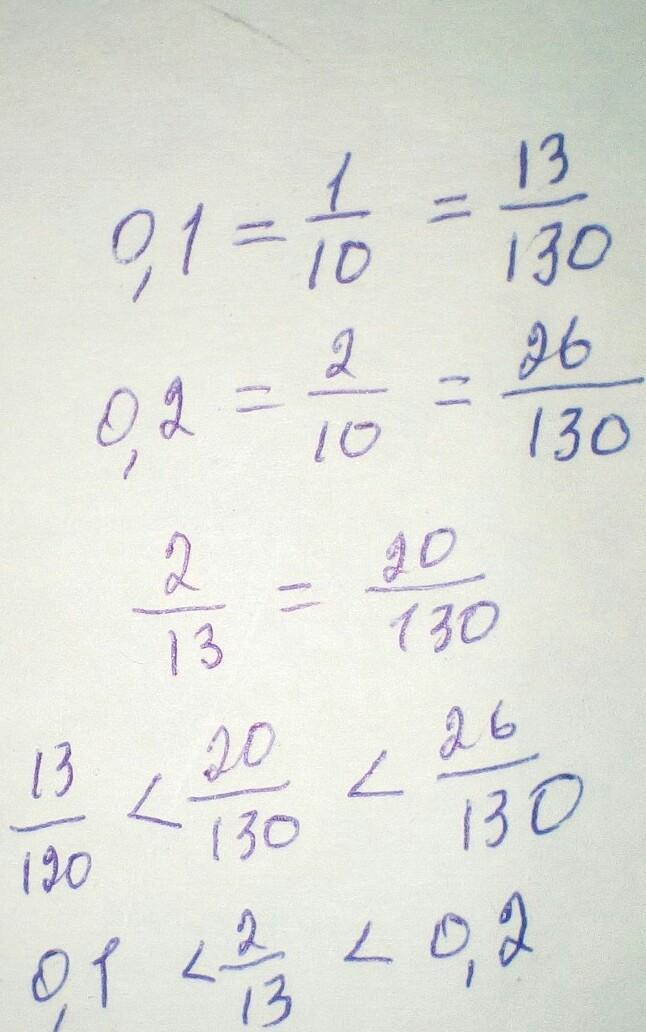 0,1 = 1/10 = 13/130
0,2 = 2/10 = 26/130
2/13 = 20/130
13/120 < 20/130 < 26/130
0,1 < 2/13 < 0,2